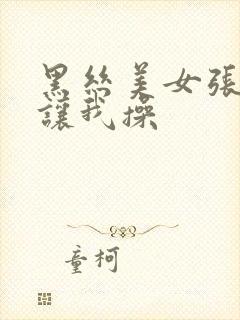 黑絲美女張
讓我操
童柯